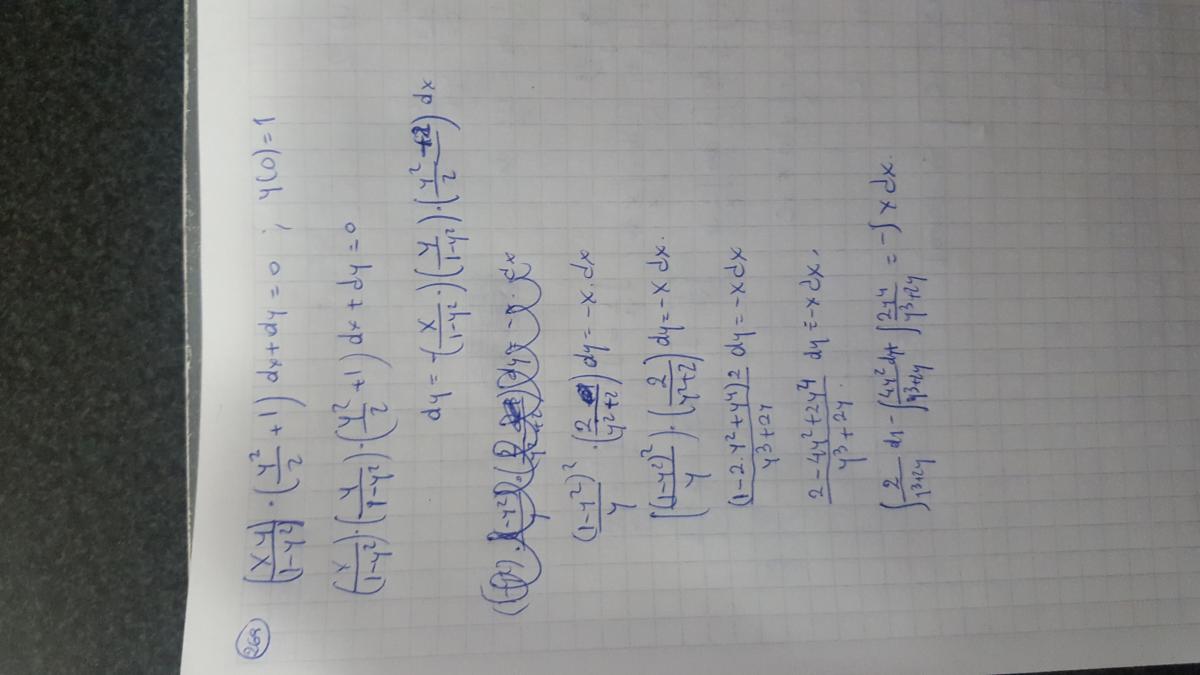 269
(xy/(1-y²)) · (y²/2 + 1) dx + dy = 0 ; y(0) = 1
(x/(1-y²)) · (y/(1-y²)) · (y²/2 + 1) dx + dy = 0
dy = -(x/(1-y²)) · (y/(1-y²)) · (y²+2/2) dx
(1-y²)²/y · (2/(y²+2)) dy = -x · dx
[(1-y²)²/y] · (2/(y²+2)) dy = -x dx.
(1-2·y²+y⁴)2/(y³+2y) dy = -x dx
2-4y²+2y⁴/(y³+2y) dy = -x dx,
∫ 2/(y³+2y) dy - ∫ 4y²/(y³+2y) dy + ∫ 2y⁴/(y³+2y) = -∫ x dx.